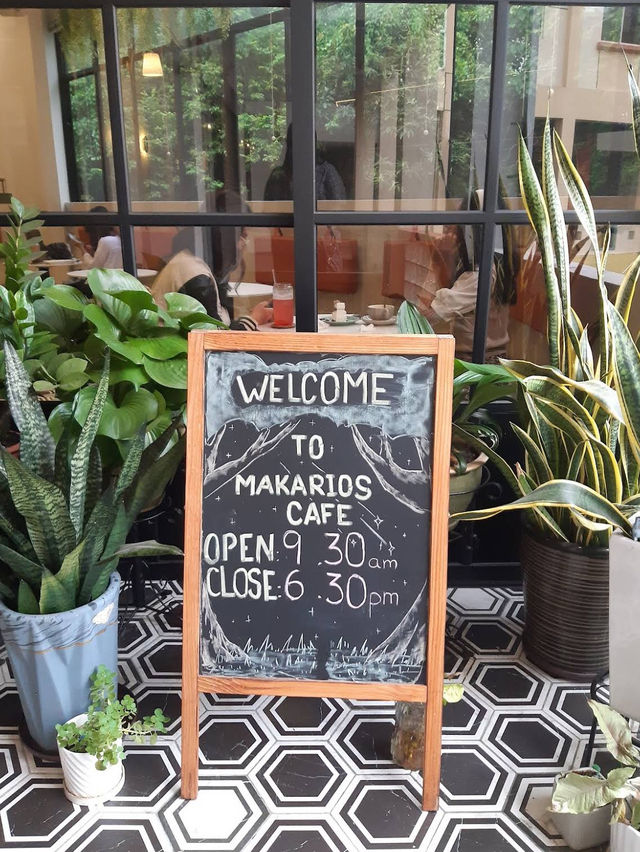 WELCOME
TO
MAKARIOS
CAFE
OPEN:9 .30am
CLOSE:6 .30pm